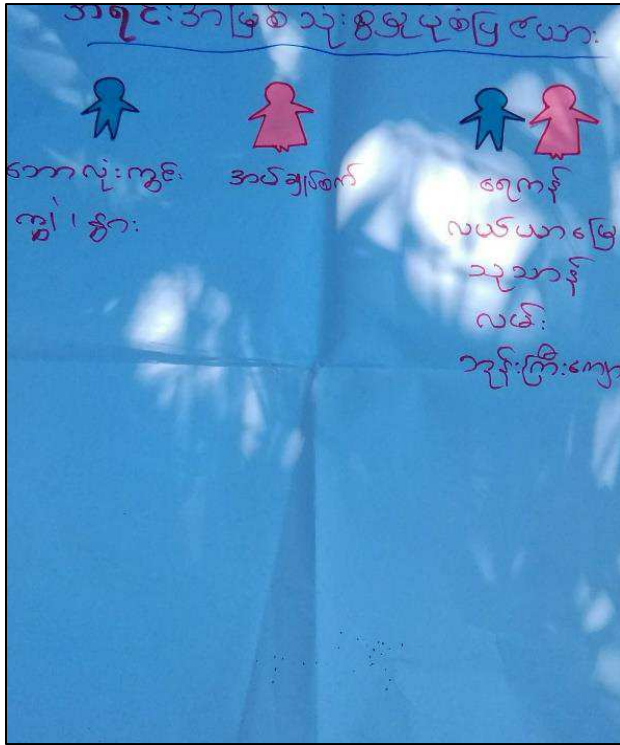 အရင်းအမြစ်သုံးစွဲမှုပုံစံပြဇယား
ဘောလုံးကွင်း
ကျွဲ၊ နွား
အပ်ချုပ်စက်
ရေကန်
လယ်ယာမြေ
သုသာန်
လမ်း
ဘုန်းကြီးကျော